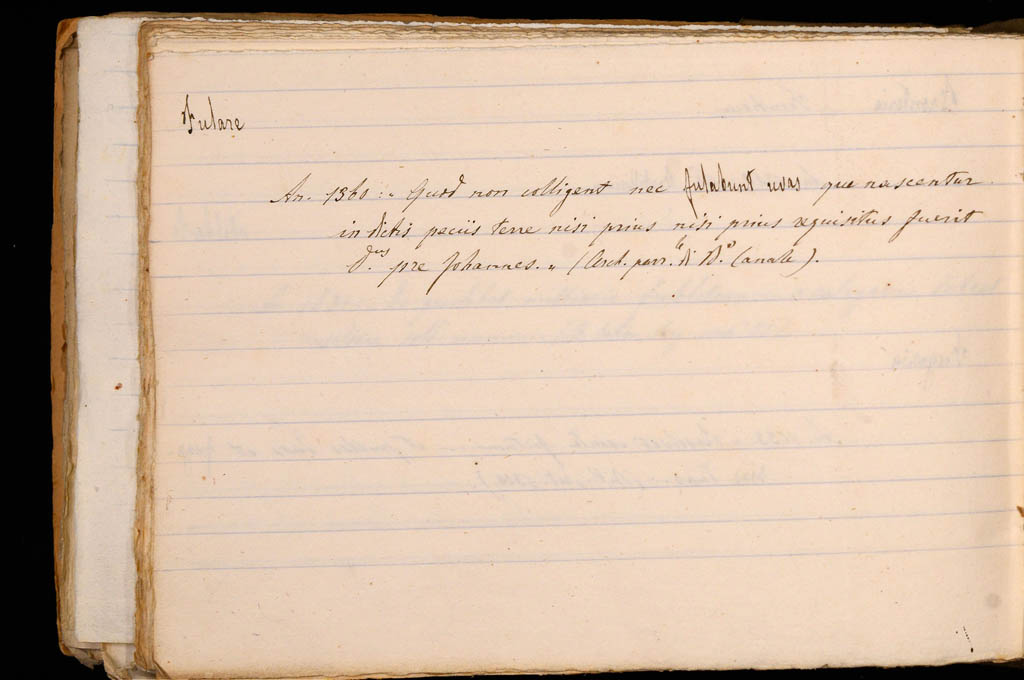 Fulare
An. 1360: " Quod non colligent nec fulabunt uvas que nascentur
in dictis peciis terre nisi prius nisi prius requisitus fuerit
d.us pre Johannes. " (Arch. parr. di D. Canale).